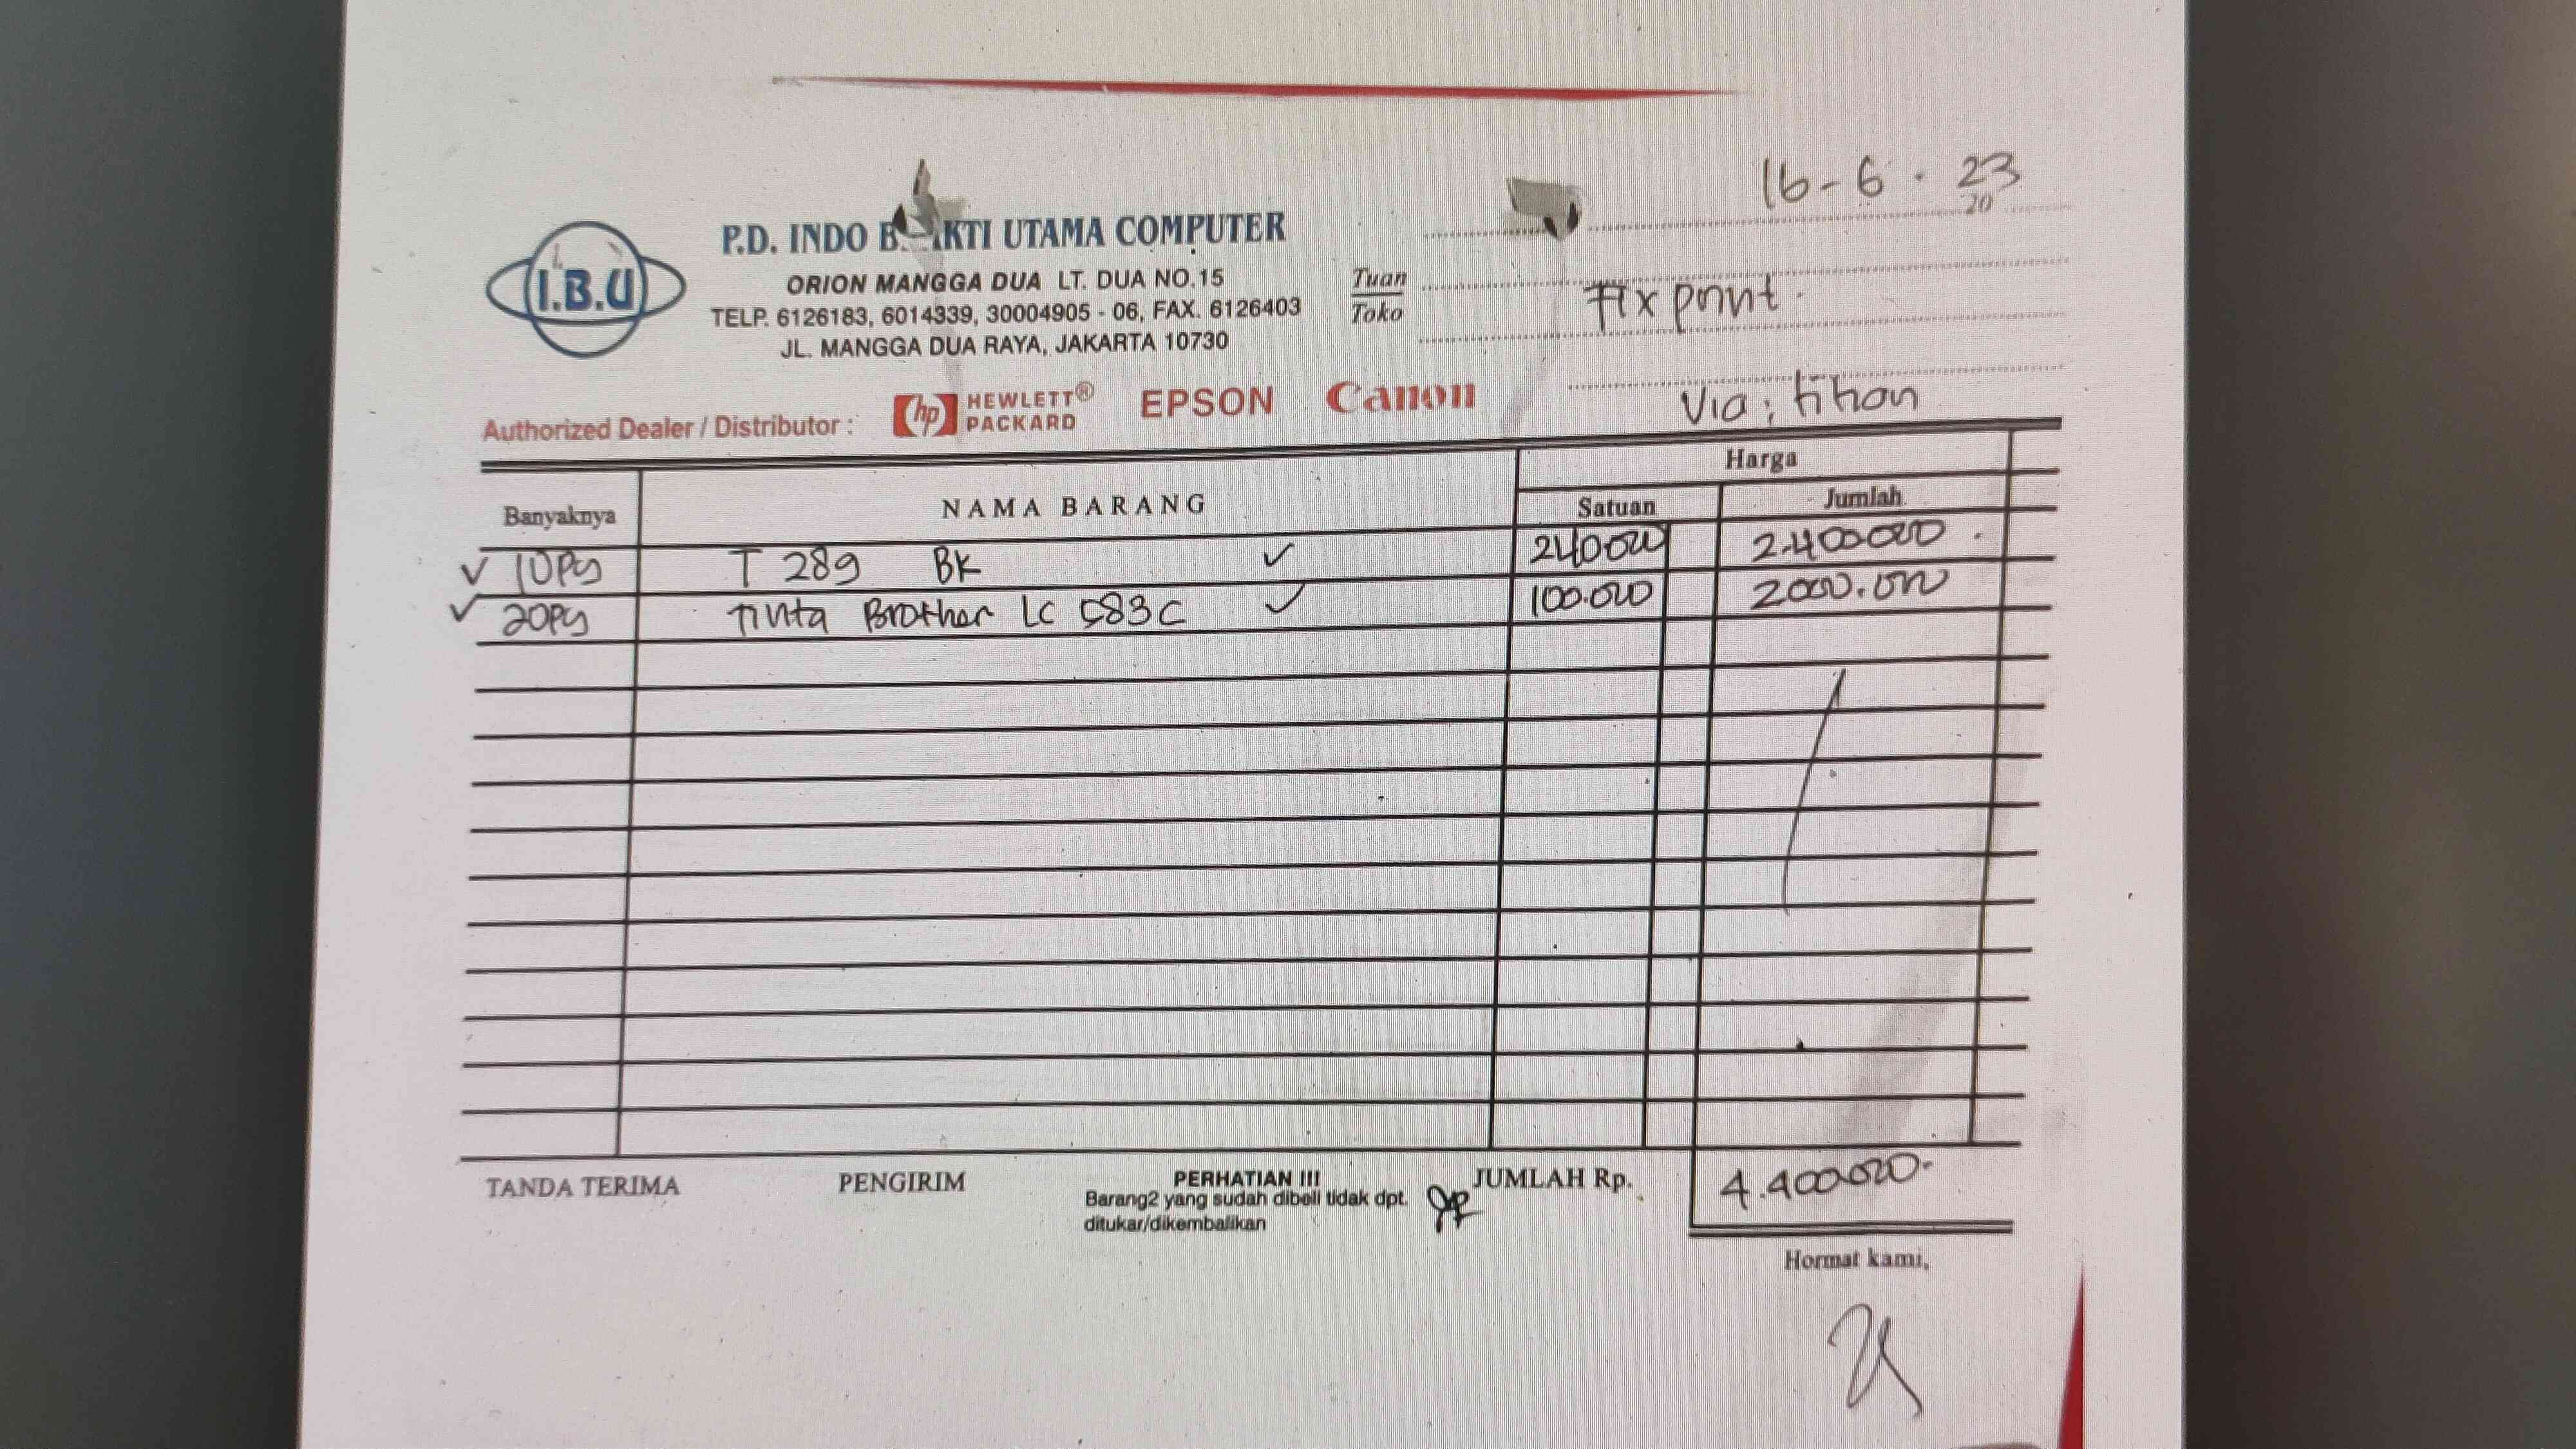 16-6-23
20
I.B.U
P.D. INDO BAKTI UTAMA COMPUTER
ORION MANGGA DUA LT. DUA NO.15
TELP. 6126183, 6014339, 30004905 - 06, FAX. 6126403
JL. MANGGA DUA RAYA, JAKARTA 10730
Tuan
Toko
Fix print.
Authorized Dealer / Distributor : hp HEWLETT® PACKARD EPSON Canon
Via : titian
Banyaknya NAMA BARANG Harga
Satuan Jumlah
10 Pcs T 289 BK 240.000 2.400.000
20 Pcs Tinta Brother LC 583 C 100.000 2000.000
TANDA TERIMA PENGIRIM PERHATIAN !!! JUMLAH Rp. 4.400.000-
Barang2 yang sudah dibeli tidak dpt.
ditukar/dikembalikan
Hormat kami,